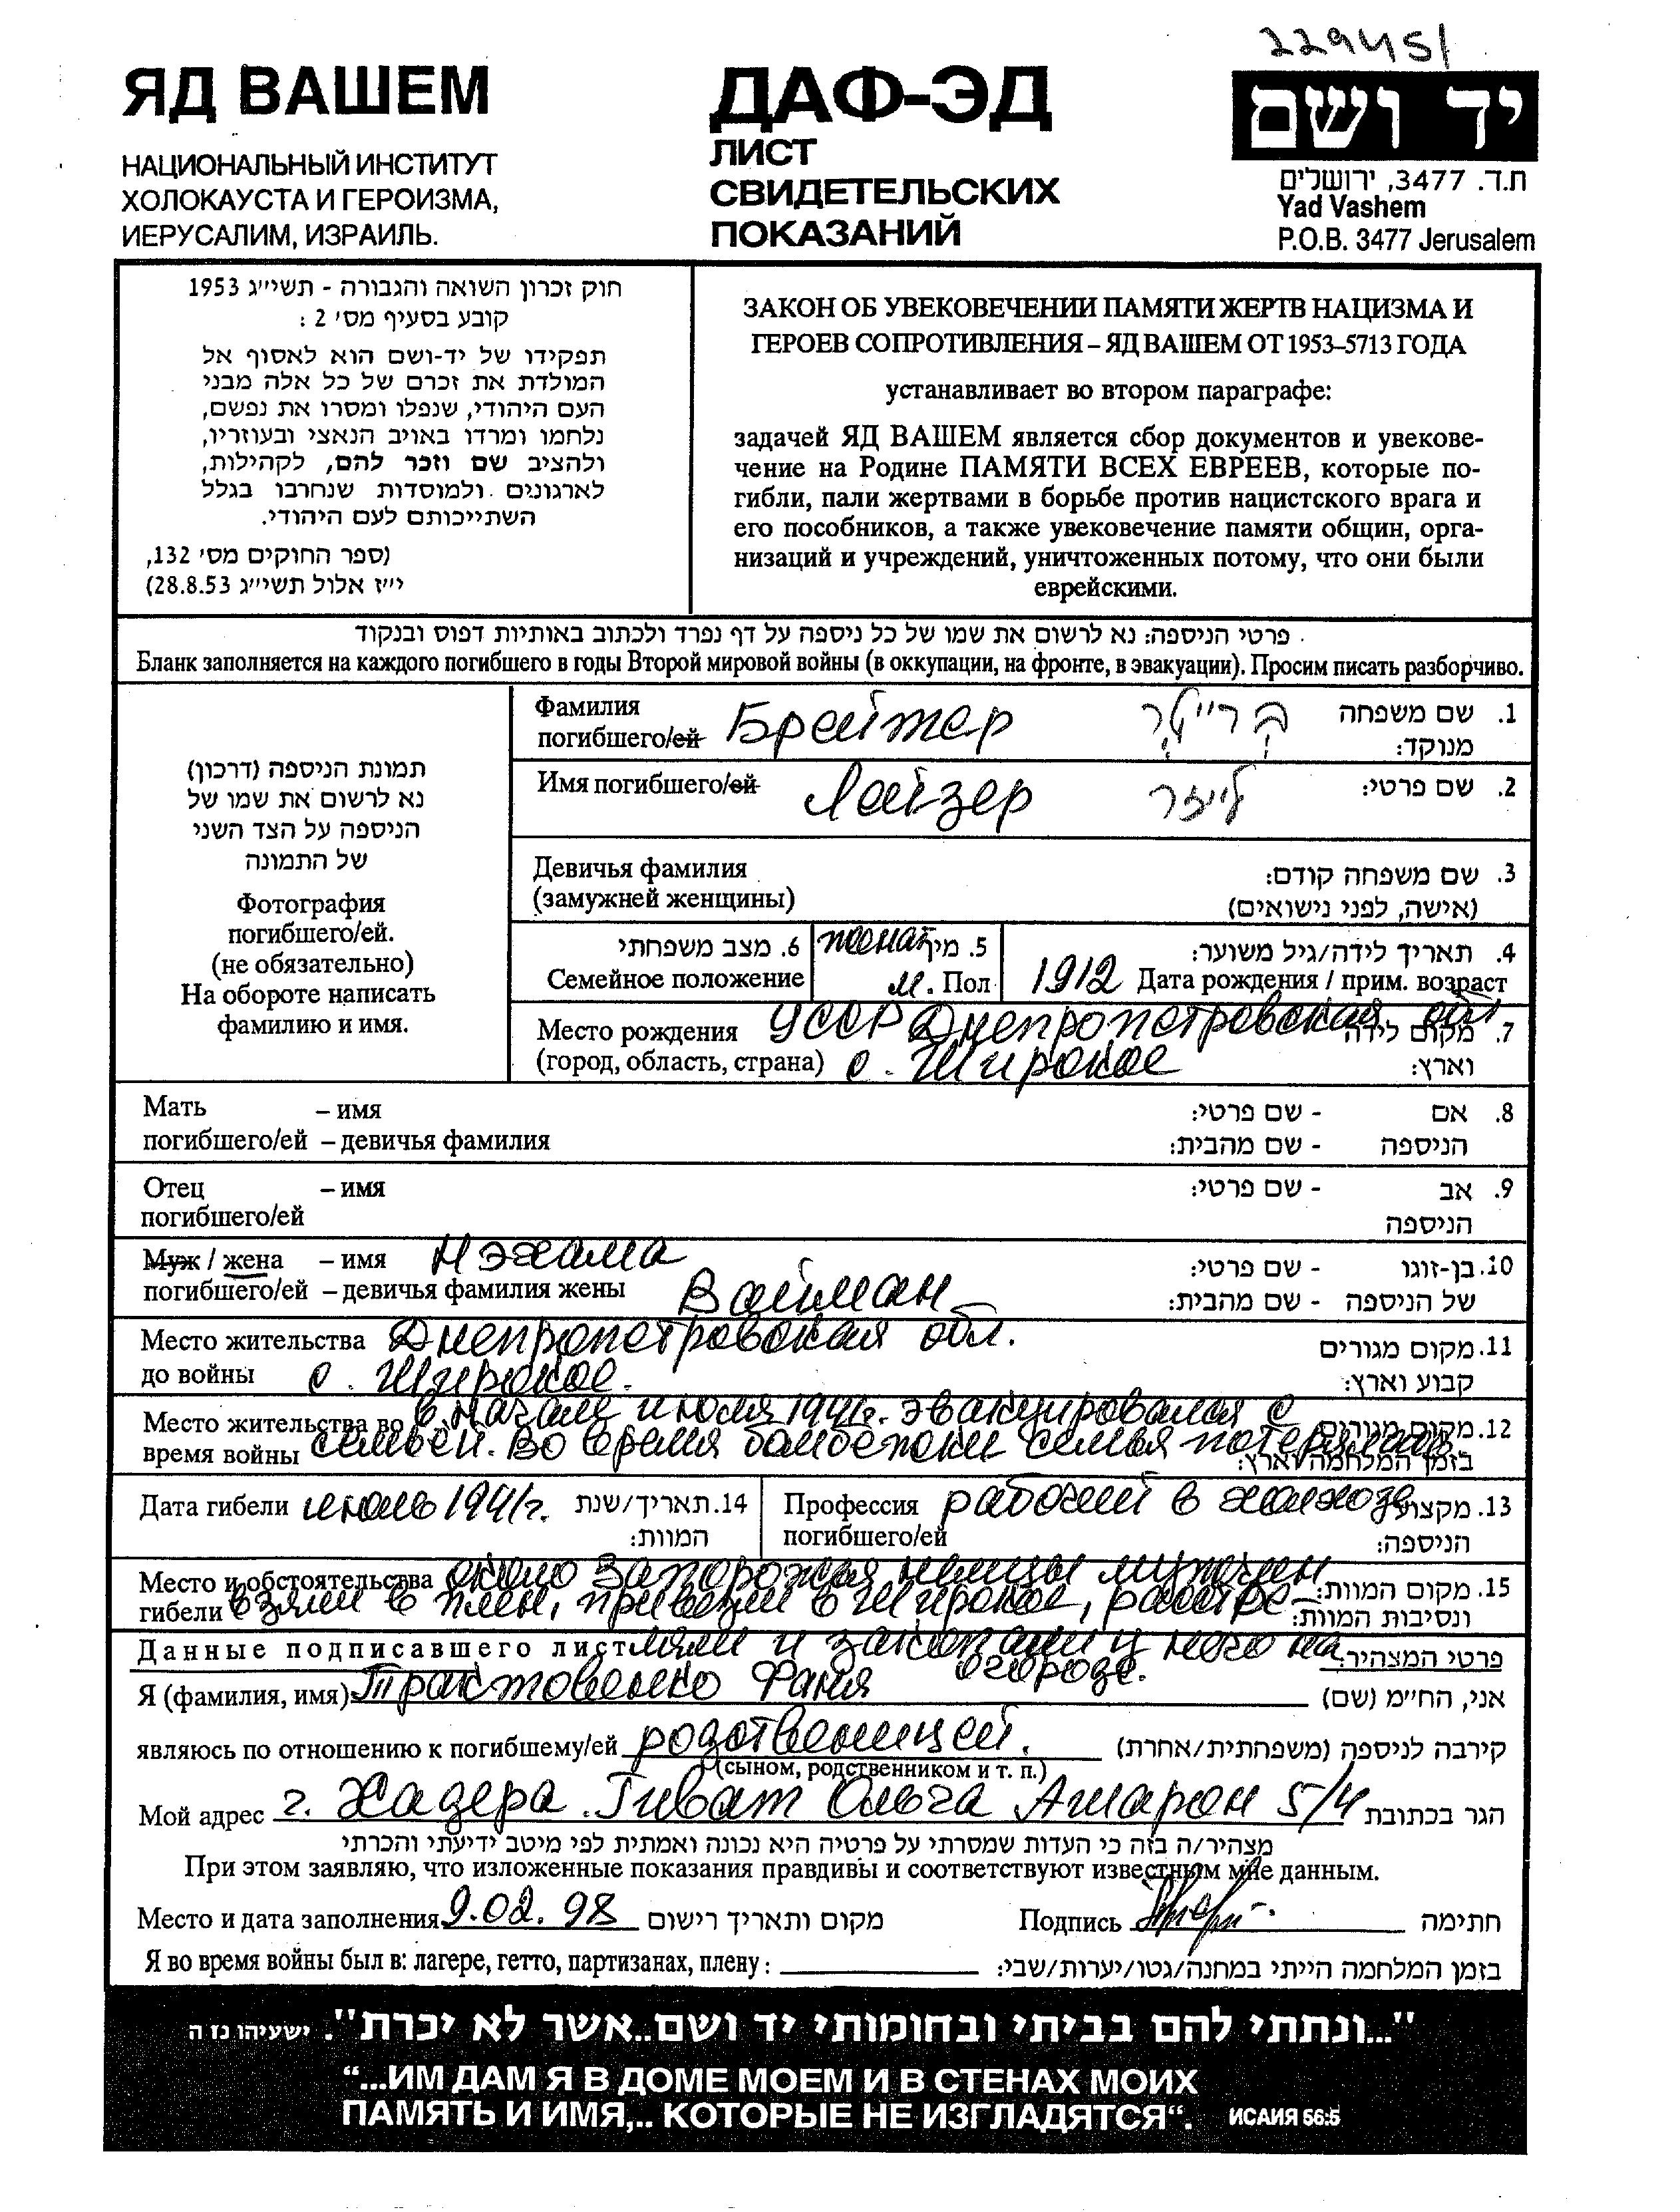 229451
ЯД ВАШЕМ
НАЦИОНАЛЬНЫЙ ИНСТИТУТ
ХОЛОКАУСТА И ГЕРОИЗМА,
ИЕРУСАЛИМ, ИЗРАИЛЬ.
ДАФ-ЭД
ЛИСТ
СВИДЕТЕЛЬСКИХ
ПОКАЗАНИЙ
יד ושם
ת.ד. 3477, ירושלים
Yad Vashem
P.O.B. 3477 Jerusalem
חוק זכרון השואה והגבורה - תשי״ג 1953
קובע בסעיף מס׳ 2 :
תפקידו של יד-ושם הוא לאסוף אל
המולדת את זכרם של כל אלה מבני
העם היהודי, שנפלו ומסרו את נפשם,
נלחמו ומרדו באויב הנאצי ובעוזריו,
ולהציב שם וזכר להם, לקהילות,
לארגונים ולמוסדות שנחרבו בגלל
השתייכותם לעם היהודי.
(ספר החוקים מס׳ 132,
י״ז אלול תשי״ג 28.8.53)
ЗАКОН ОБ УВЕКОВЕЧЕНИИ ПАМЯТИ ЖЕРТВ НАЦИЗМА И
ГЕРОЕВ СОПРОТИВЛЕНИЯ – ЯД ВАШЕМ ОТ 1953–5713 ГОДА
устанавливает во втором параграфе:
задачей ЯД ВАШЕМ является сбор документов и увекове-
чение на Родине ПАМЯТИ ВСЕХ ЕВРЕЕВ, которые по-
гибли, пали жертвами в борьбе против нацистского врага и
его пособников, а также увековечение памяти общин, орга-
низаций и учреждений, уничтоженных потому, что они были
еврейскими.
פרטי הניספה: נא לרשום את שמו של כל ניספה על דף נפרד ולכתוב באותיות דפוס ובנקוד
Бланк заполняется на каждого погибшего в годы Второй мировой войны (в оккупации, на фронте, в эвакуации). Просим писать разборчиво.
תמונת הניספה (דרכון)
נא לרשום את שמו של
הניספה על הצד השני
של התמונה
Фотография
погибшего/ей.
(не обязательно)
На обороте написать
фамилию и имя.
Фамилия
погибшего/ей Брейтер ברייטר 1. שם משפחה
מנוקד:
Имя погибшего/ей Лейзер לייזר 2. שם פרטי:
Девичья фамилия 3. שם משפחה קודם:
(замужней женщины) (אישה, לפני נישואים)
6. מצב משפחתי женат 5. מין 4. תאריך לידה/גיל משוער:
Семейное положение м. Пол 1912 Дата рождения / прим. возраст
Место рождения УССР Днепропетровская обл 7. מקום לידה
(город, область, страна) с. Широкое וארץ:
Мать – имя 8. אם - שם פרטי:
погибшего/ей – девичья фамилия הניספה - שם מהבית:
Отец – имя 9. אב - שם פרטי:
погибшего/ей הניספה
Муж / жена – имя Нэхама 10. בן-זוגו - שם פרטי:
погибшего/ей – девичья фамилия жены Вайман של הניספה - שם מהבית:
Место жительства Днепропетровская обл. 11. מקום מגורים
до войны с. Широкое. קבוע וארץ:
Место жительства во в начале июля 1941г. эвакуировался с 12. מקום מגורים
время войны семьей. Во время бомбежки семья потерялась. בזמן המלחמה וארץ:
Дата гибели июль 1941г. 14. תאריך/שנת Профессия рабочий в колхозе 13. מקצוע
המוות: погибшего/ей הניספה:
Место и обстоятельства около Запорожья немцы мужчин 15. מקום המוות:
гибели взяли в плен, привезли в Широкое, расстре- ונסיבות המוות:
Данные подписавшего лист ляли и закопали у него на פרטי המצהיר:
огороде.
Я (фамилия, имя) Трактовенко Фаня אני, הח״מ (שם)
являюсь по отношению к погибшему/ей родственницей. קירבה לניספה (משפחתית/אחרת)
(сыном, родственником и т. п.)
Мой адрес г. Хадера Гиват Ольга Ашарон 5/4 הגר בכתובת
מצהיר/ה בזה כי העדות שמסרתי על פרטיה היא נכונה ואמתית לפי מיטב ידיעתי והכרתי
При этом заявляю, что изложенные показания правдивы и соответствуют известным мне данным.
Место и дата заполнения 9.02.98 מקום ותאריך רישום Подпись חתימה
Я во время войны был в: лагере, гетто, партизанах, плену : בזמן המלחמה הייתי במחנה/גטו/יערות/שבי:
"...ונתתי להם בביתי ובחומותי יד ושם..אשר לא יכרת". ישעיהו נז ה
“...ИМ ДАМ Я В ДОМЕ МОЕМ И В СТЕНАХ МОИХ
ПАМЯТЬ И ИМЯ,.. КОТОРЫЕ НЕ ИЗГЛАДЯТСЯ“. ИСАИЯ 56:5